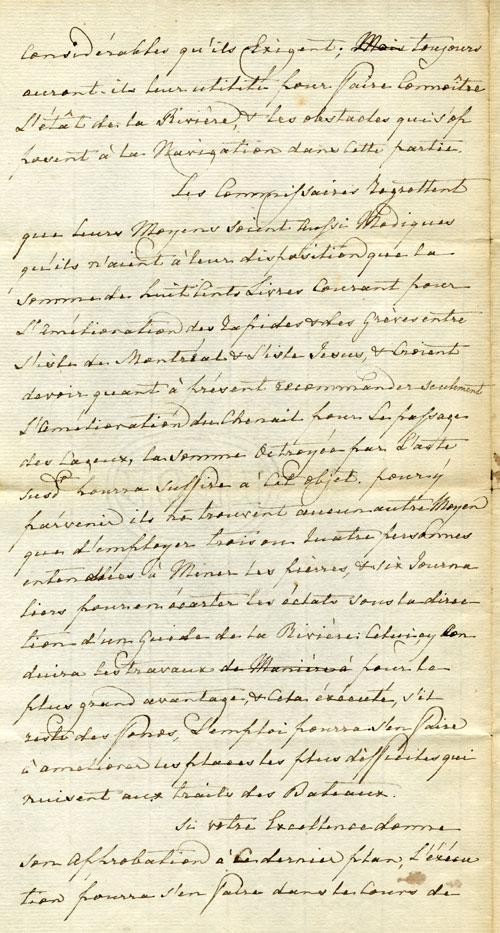 considérables qu'ils Exigent; Mais toujours
auront-ils leur utilité pour faire Connoître
L'êtât de la Rivière, & les obstacles qui s'op
posent à la Navigation dans Cette partie.
Les Commissaires Regrettent
que leurs Moyens soient aussi Modiques
qu'ils n'aient à leur disposition que la
Somme de huit Cents Livres Courant pour
L'Amélioration des Rapides & des Grèves entre
L'isle de Montréal & L'isle Jesus, & Croient
devoir quant à présent recommander seulement
L'Amélioration du Chenail pour Le passage
des Cageux, la somme Octroyée par L'acte
susd. pourra suffire à Cet objet. pour y
parvenir ils ne trouvent aucun autre Moyen
que d'employer trois ou quatre personnes
entendües à Miner les pierres, & six Journa
liers pour en écarter les éclats sous la direc
tion d'un Guide de la Rivière: Celui-cy Con
duira les travaux de Manière à pour le
plus grand avantage, & Cela éxécuté, s'il
reste des fonds, L'emploi pourra s'en faire
à améliorer les places les plus difficiles qui
nuisent aux traits des Bateaux.
Si votre Excellence donne
son Approbation à Ce dernier plan, L'éxécu
tion pourra s'en faire dans le Cours de